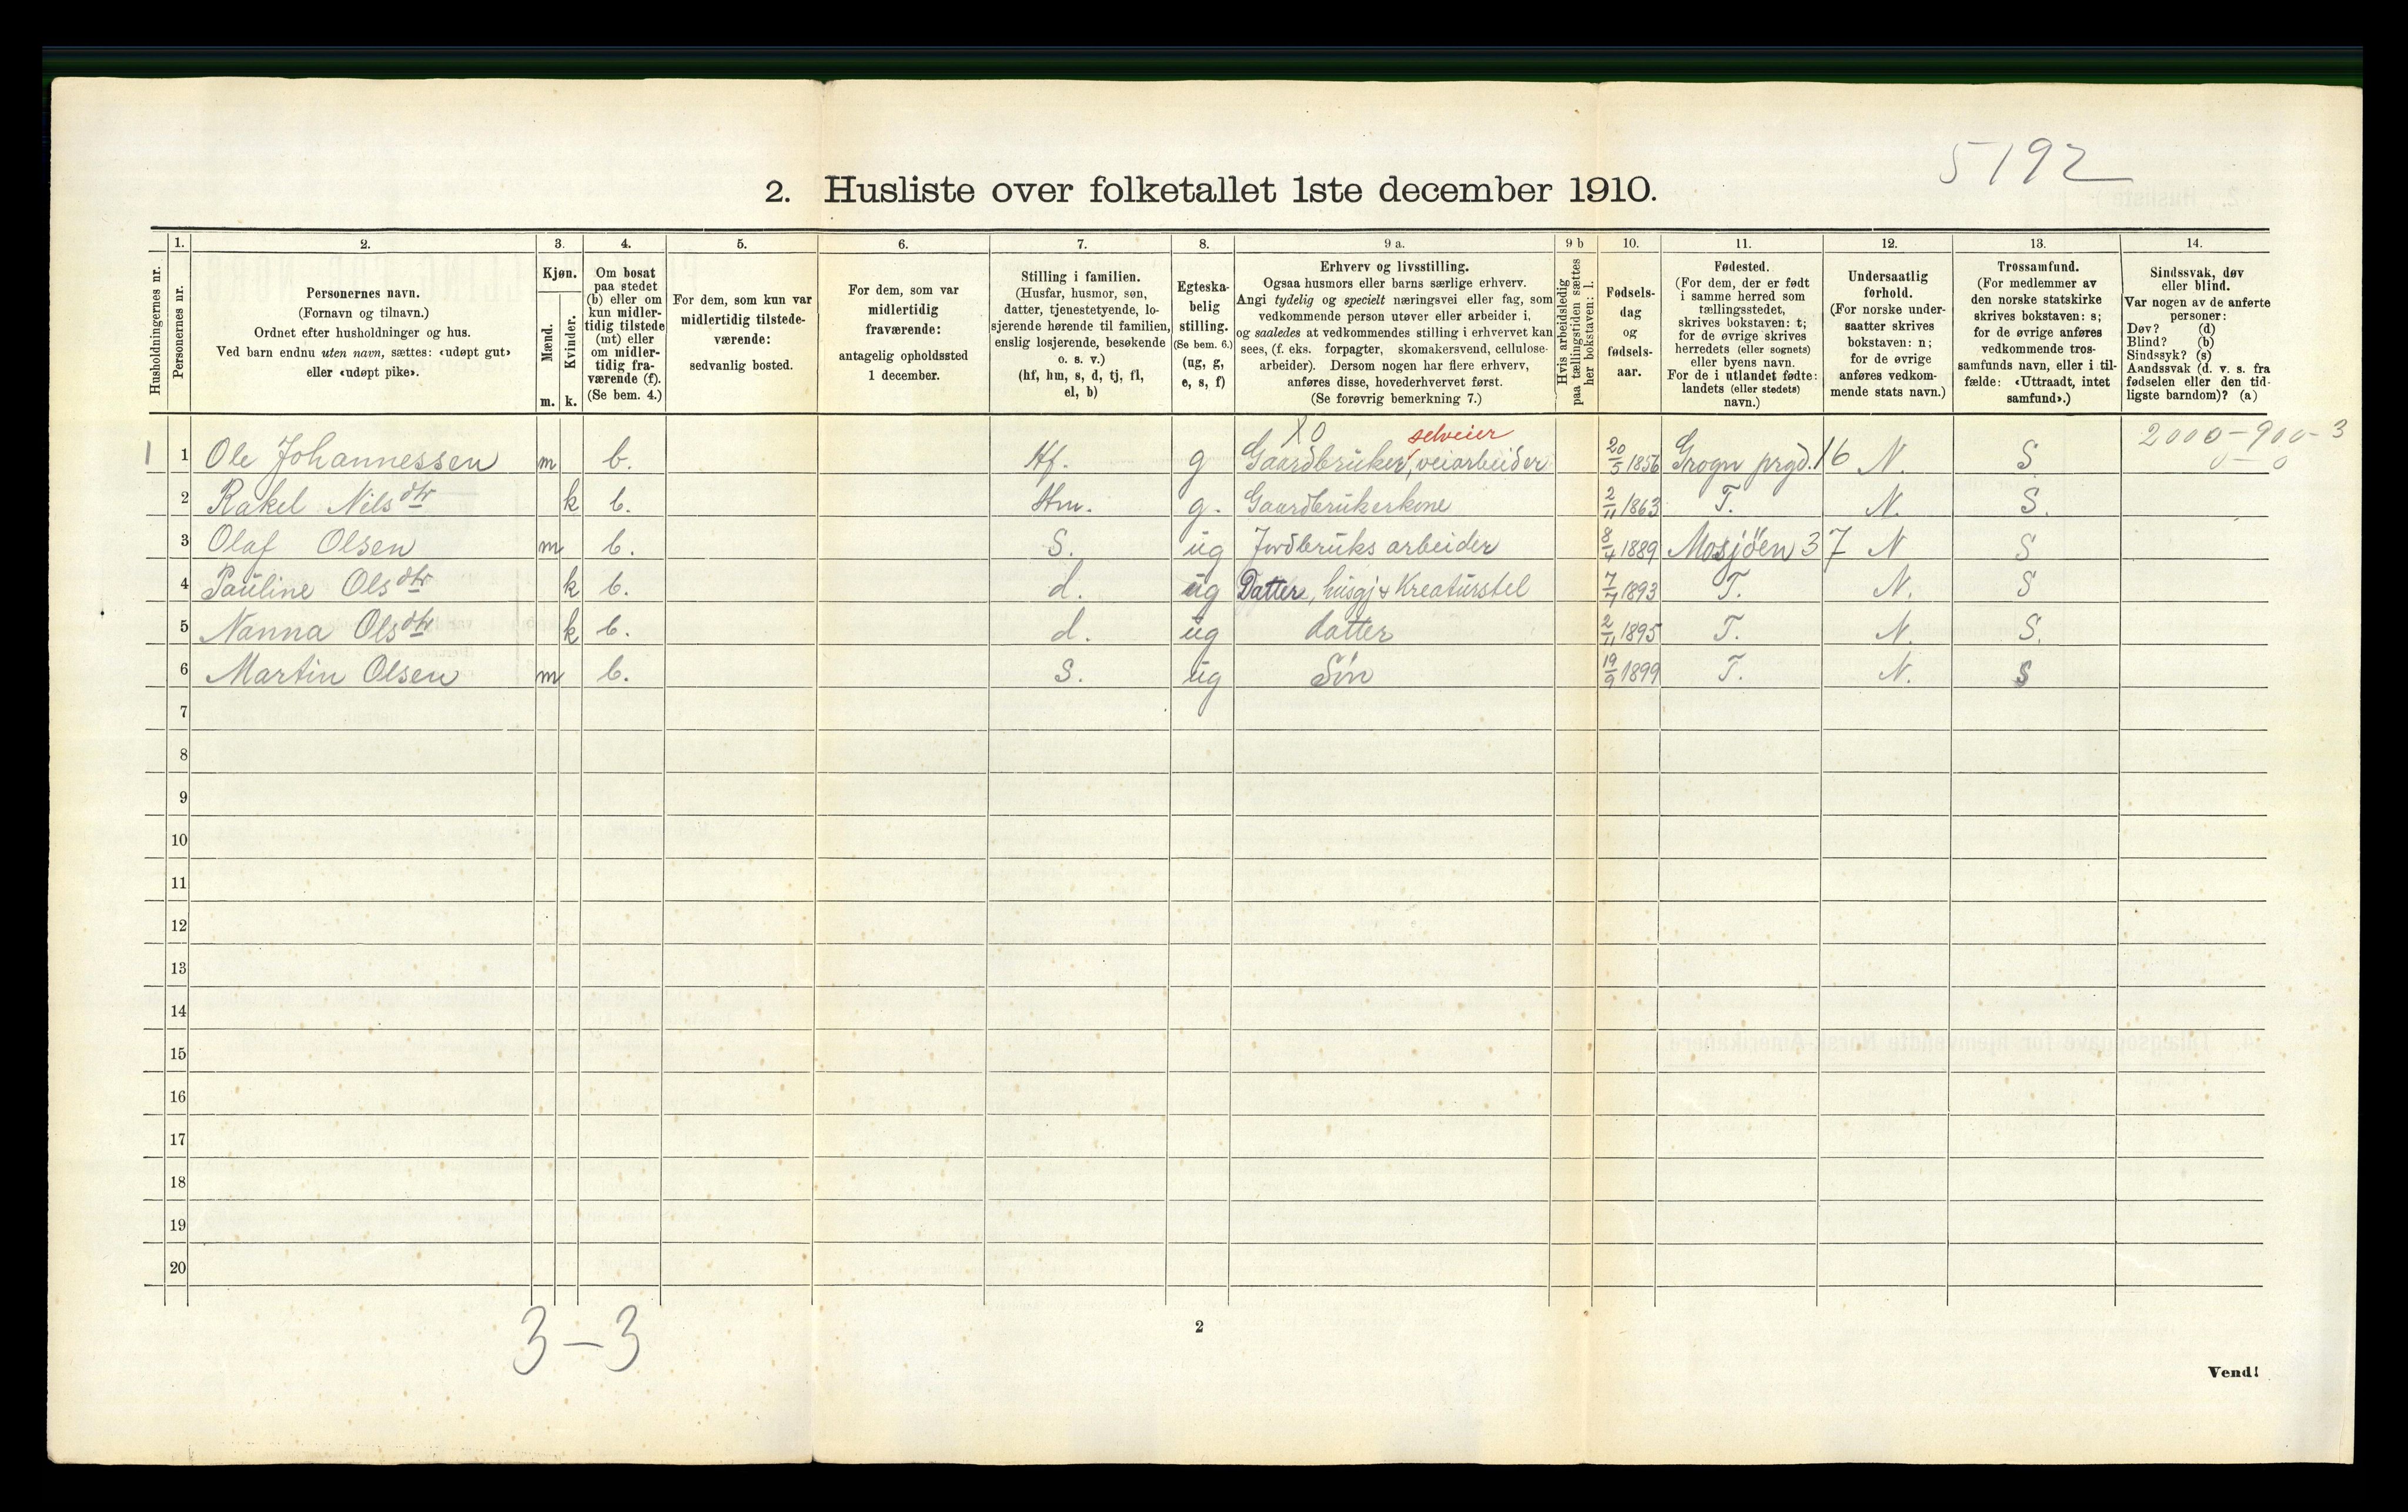 5192
2. Husliste over folketallet 1ste december 1910.
Husholdningernes nr.
1.
Personernes nr.
2.
Personernes navn.
(Fornavn og tilnavn.)
Ordnet efter husholdninger og hus.
Ved barn endnu uten navn, sættes: «udøpt gut»
eller «udøpt pike».
3.
Kjøn.
Mænd.
m.
Kvinder.
k.
4.
Om bosat
paa stedet
(b) eller om
kun midler-
tidig tilstede
(mt) eller
om midler-
tidig fra-
værende (f).
(Se bem. 4.)
5.
For dem, som kun var
midlertidig tilstede-
værende:
sedvanlig bosted.
6.
For dem, som var
midlertidig
fraværende:
antagelig opholdssted
1 december.
7.
Stilling i familien.
(Husfar, husmor, søn,
datter, tjenestetyende, lo-
sjerende hørende til familien,
enslig losjerende, besøkende
o. s. v.)
(hf, hm, s, d, tj, fl,
el, b)
8.
Egteska-
belig
stilling.
(Se bem. 6.)
(ug, g,
e, s, f)
9 a.
Erhverv og livsstilling.
Ogsaa husmors eller barns særlige erhverv.
Angi tydelig og specielt næringsvei eller fag, som
vedkommende person utøver eller arbeider i,
og saaledes at vedkommendes stilling i erhvervet kan
sees, (f. eks. forpagter, skomakersvend, cellulose-
arbeider). Dersom nogen har flere erhverv,
anføres disse, hovederhvervet først.
(Se forøvrig bemerkning 7.)
9 b
Hvis arbeidsledig
paa tællingstiden sættes
her bokstaven: l.
10.
Fødsels-
dag
og
fødsels-
aar.
11.
Fødested.
(For dem, der er født
i samme herred som
tællingsstedet,
skrives bokstaven: t;
for de øvrige skrives
herredets (eller sognets)
eller byens navn.
For de i utlandet fødte:
landets (eller stedets)
navn.)
12.
Undersaatlig
forhold.
(For norske under-
saatter skrives
bokstaven: n;
for de øvrige
anføres vedkom-
mende stats navn.)
13.
Trossamfund.
(For medlemmer av
den norske statskirke
skrives bokstaven: s;
for de øvrige anføres
vedkommende tros-
samfunds navn, eller i til-
fælde: «Uttraadt, intet
samfund».)
14.
Sindssvak, døv
eller blind.
Var nogen av de anførte
personer:
Døv? (d)
Blind? (b)
Sindssyk? (s)
Aandssvak (d. v. s. fra
fødselen eller den tid-
ligste barndom)? (a)
X0 selveier 2000-900-3
1 1 Ole Johannessen m b. Hf. g Gaardbruker, veiarbeider 20/5 1856 Grogn prgd. 16 N. S 0 — 0
2 Rakel Nilsdtr k b. Hm. g. Gaardbrukerkone 2/11 1863 T. N. S.
3 Olaf Olsen m b. S. ug Jordbruks arbeider 8/4 1889 Mosjöen 37 N S
4 Pauline Olsdtr k b. d. ug Datter, husgj & Kreaturstel 7/7 1893 T. N. S
5 Nanna Olsdtr k b. d. ug datter 2/11 1895 T. N. S.
6 Martin Olsen m b. S. ug Sön 19/9 1899 T. N. S
7
8
9
10
11
12
13
14
15
16
17
18
19
20
3-3
2
Vend!